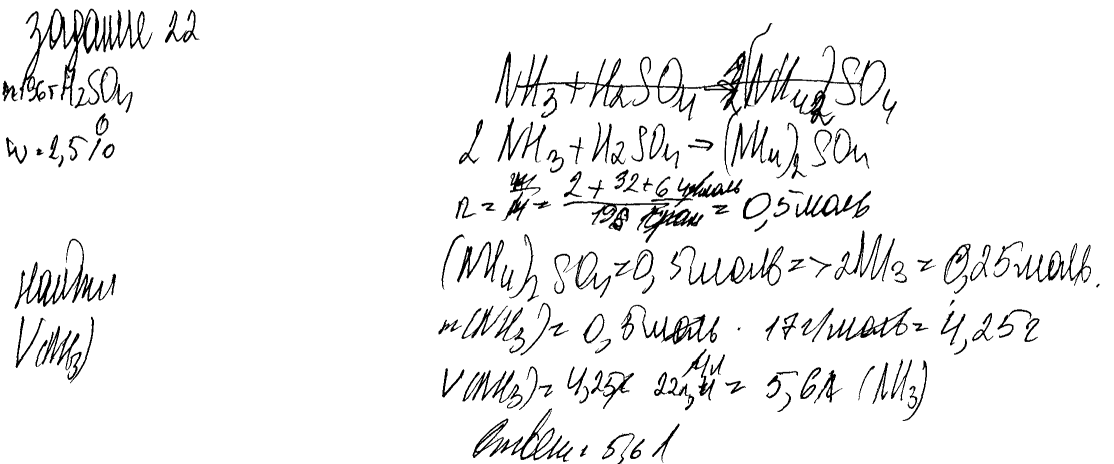 задание 22
m=196г H2SO4
w=2,5%
Найти
V(NH3)
NH3+H2SO4→2(NH4)2SO4
2NH3+H2SO4→(NH4)2SO4
n = m/M = 2+32+64г/моль / 196 грам = 0,5моль
(NH4)2SO4=0,5моль=>2NH3=0,25моль.
m(NH3)=0,5моль · 17г/моль=4,25г
V(NH3)=4,25 22,4 = 5,6л (NH3)
Ответ: 5,6л